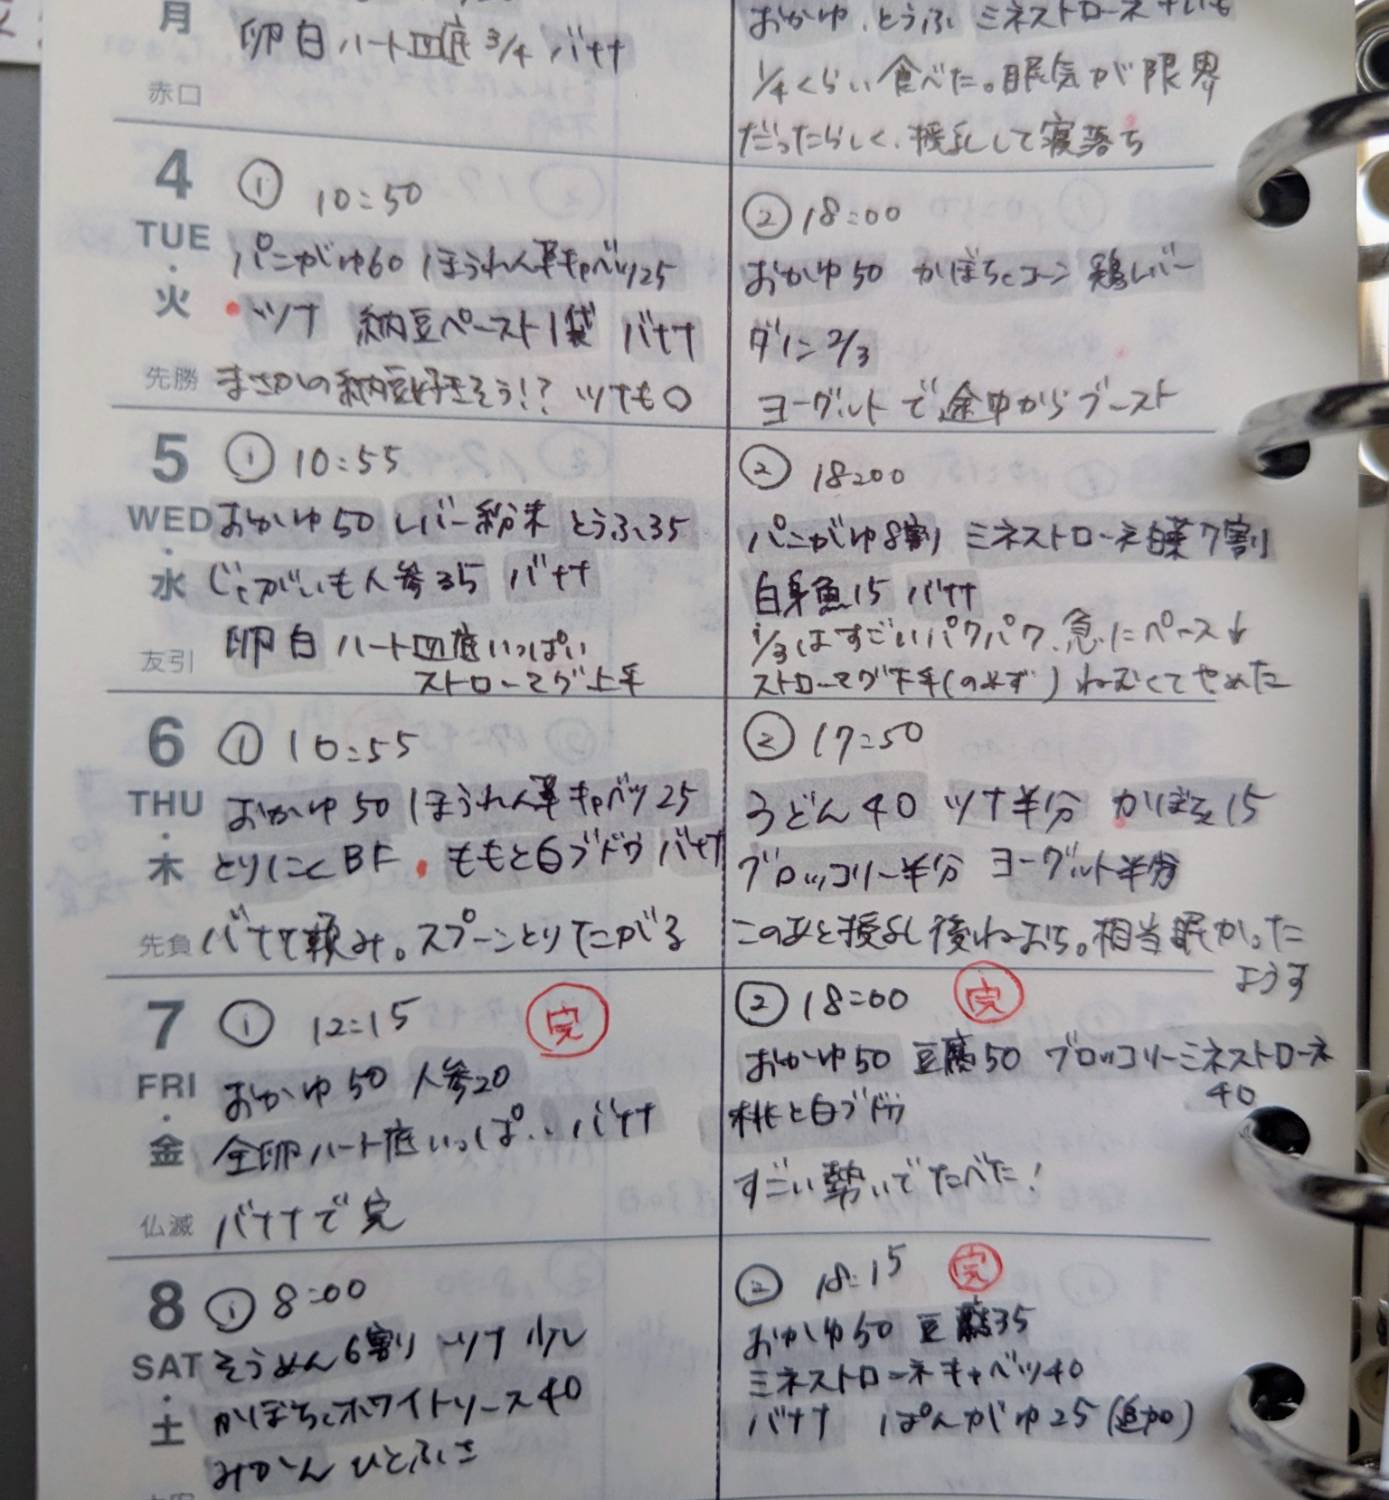 月
卵白 ハート皿底 3/4 バナナ
赤口
おかゆ、とうふ ミネストローネ
1/4くらい食べた。眠気が限界
だったらしく、授乳して寝落ち
4
TUE
火
先勝
① 10:50
パンがゆ60 ほうれん草キャベツ25
ツナ 納豆ペースト1袋 バナナ
まさかの納豆好きそう!? ツナも○
② 18:00
おかゆ50 かぼちゃコーン 鶏レバー
ダノン 2/3
ヨーグルトで途中からブースト
5
WED
水
友引
① 10:55
おかゆ50 レバー粉末 とうふ35
じゃがいも人参35 バナナ
卵白 ハート皿底いっぱい
ストローマグ上手
② 18:00
パンがゆ8割 ミネストローネ白菜7割
白身魚15 バナナ
1/3はすごいパクパク、急にペース↓
ストローマグ下手(のめず) ねむくてやめた
6
THU
木
先負
① 10:55
おかゆ50 ほうれん草キャベツ25
とりにくBF ももと白ブドウ バナナ
バナナ頼み。スプーンとりたがる
② 17:50
うどん40 ツナ半分 かぼちゃ15
ブロッコリー半分 ヨーグルト半分
このあと授乳後ねおち。相当眠かった
ようす
7
FRI
金
仏滅
① 12:15 完
おかゆ50 人参20
全卵ハート底いっぱい バナナ
バナナで完
② 18:00 完
おかゆ50 豆腐50 ブロッコリーミネストローネ
40
桃と白ブドウ
すごい勢いでたべた!
8
SAT
土
① 8:00
そうめん6割 ツナ少し
かぼちゃホワイトソース40
みかん ひとふさ
② 18:15 完
おかゆ50 豆腐35
ミネストローネキャベツ40
バナナ ぱんがゆ25(追加)